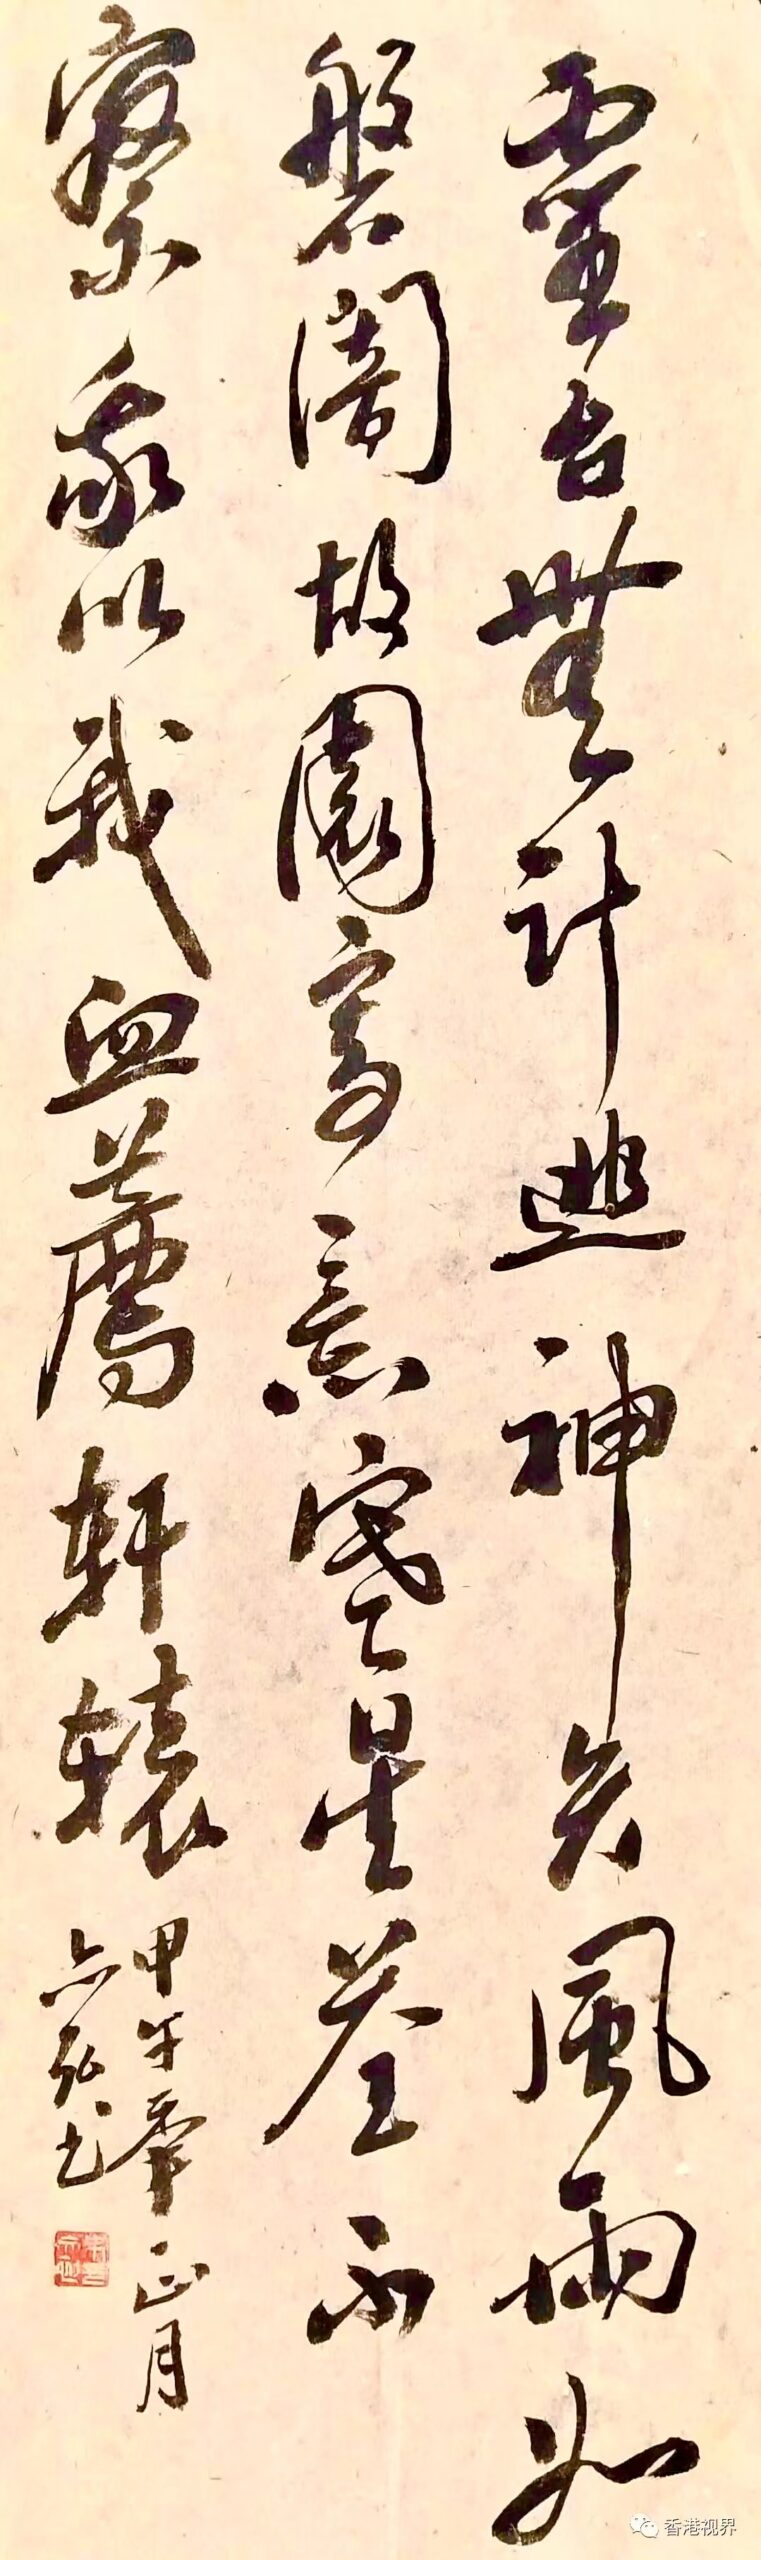 靈台無計逃神矢風雨如
磐闇故園寄意寒星荃不
察我以我血薦轩辕
甲午年正月
弘书
香港视界